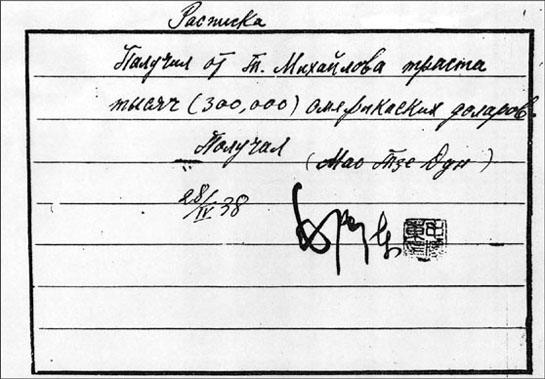 Расписка
Получил от т. Михайлова триста
тысяч (300,000) америкаских доларов.
Получил (Мао Тзе Дун)
28/IV 38